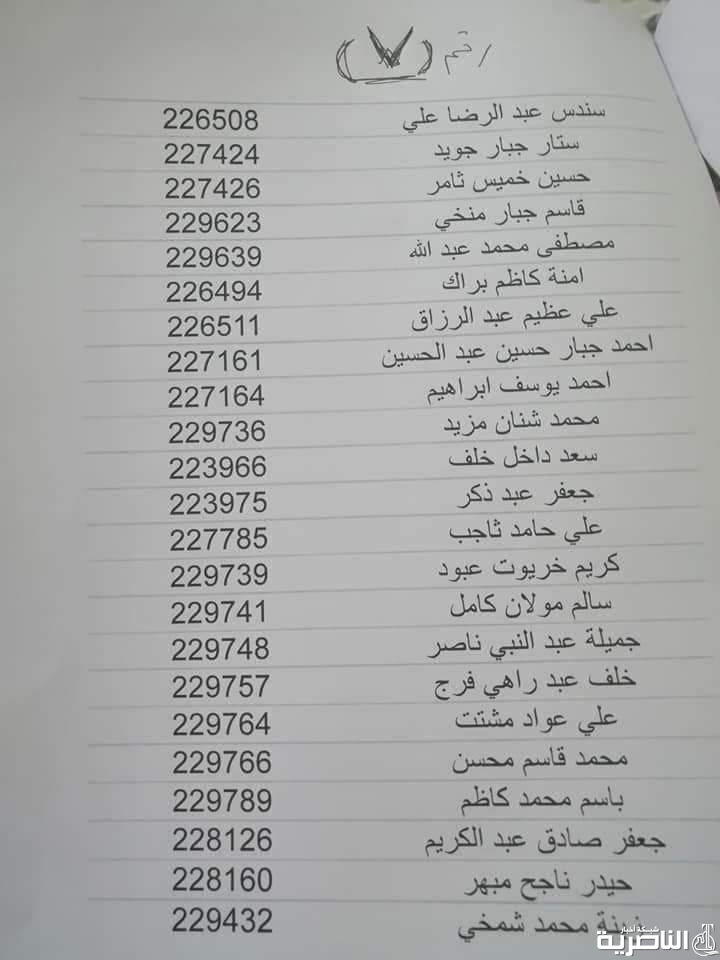 رقم (٧)
سندس عبد الرضا علي 226508
ستار جبار جويد 227424
حسين خميس ثامر 227426
قاسم جبار منخي 229623
مصطفى محمد عبد الله 229639
امنة كاظم براك 226494
علي عظيم عبد الرزاق 226511
احمد جبار حسين عبد الحسين 227161
احمد يوسف ابراهيم 227164
محمد شنان مزيد 229736
سعد داخل خلف 223966
جعفر عبد ذكر 223975
علي حامد ثاجب 227785
كريم خريوت عبود 229739
سالم مولان كامل 229741
جميلة عبد النبي ناصر 229748
خلف عبد راهي فرج 229757
علي عواد مشتت 229764
محمد قاسم محسن 229766
باسم محمد كاظم 229789
جعفر صادق عبد الكريم 228126
حيدر ناجح مبهر 228160
محمد شمخي 229432
شبكة أخبار
الناصرية